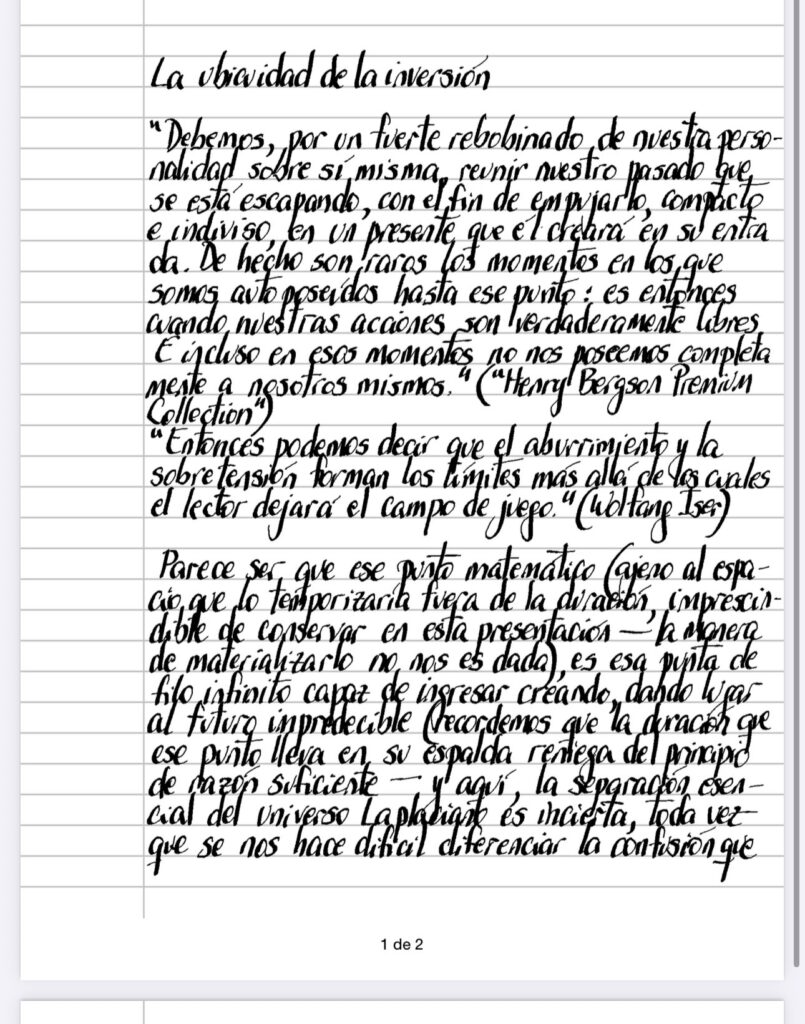 La ubicuidad de la inversión
"Debemos, por un fuerte rebobinado de nuestra perso-
nalidad sobre sí misma, reunir nuestro pasado que
se está escapando, con el fin de empujarlo, compacto
e indiviso, en un presente que él creará en su entra
da. De hecho son raros los momentos en los que
somos autoposeídos hasta ese punto: es entonces
cuando nuestras acciones son verdaderamente libres
E incluso en esos momentos no nos poseemos completa
mente a nosotros mismos." ("Henry Bergson Premium
Collection")
"Entonces podemos decir que el aburrimiento y la
sobretensión forman los límites más allá de los cuales
el lector dejará el campo de juego." (Wolfang Iser)
Parece ser que ese punto matemático (ajeno al espa-
cio que lo temporizaría fuera de la duración, imprescin-
dible de conservar en esta presentación — la manera
de materializarlo no nos es dada), es esa punta de
filo infinito capaz de ingresar creando, dando lugar
al futuro impredecible (recordemos que la duración que
ese punto lleva en su espalda reniega del principio
de razón suficiente — y aquí, la separación esen-
cial del universo Laplaciano es incierta, toda vez
que se nos hace difícil diferenciar la confusión que
1 de 2